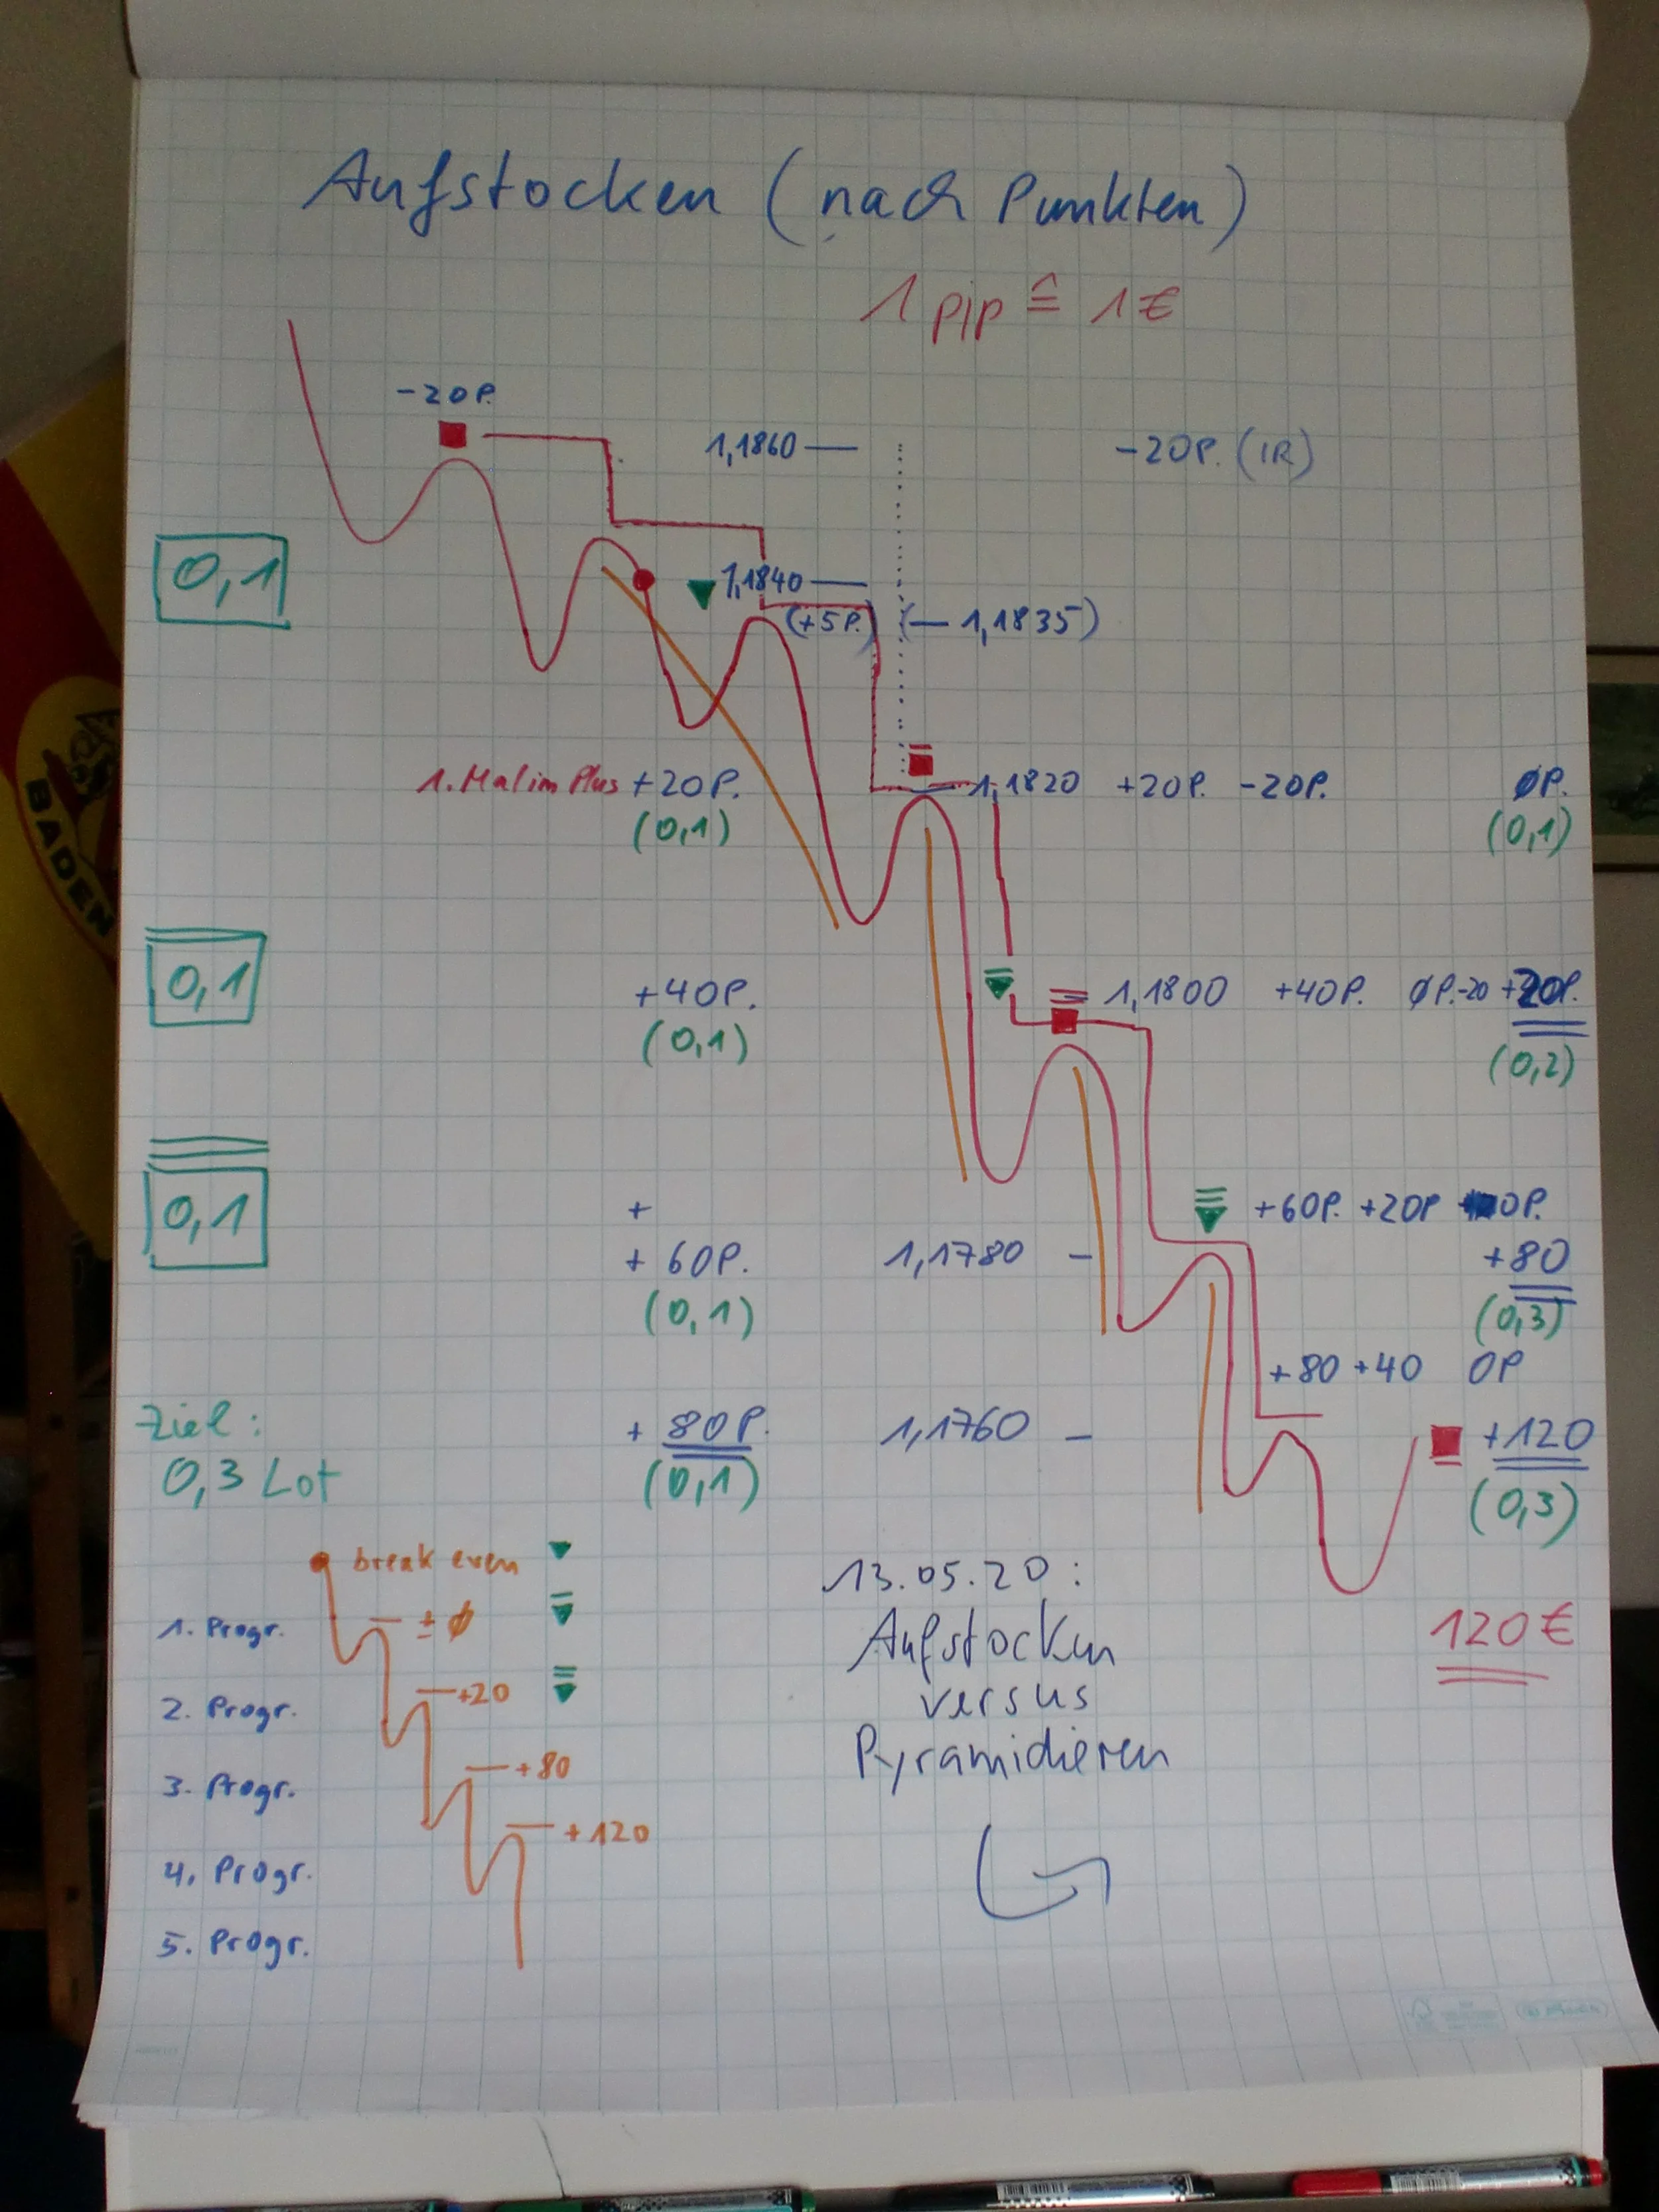 Aufstocken (nach Punkten)
1 pip ≙ 1 €
-20P.
1,1860 — -20P. (1R)
0,1
1,1840 —
(+5P.) (— 1,1835)
1. Mal im Plus +20P. — 1,1820 +20P. -20P. ØP.
(0,1) (0,1)
0,1
+40P. 1,1800 +40P. ØP. -20 +20P.
(0,1) (0,2)
0,1
+ +60P. +20P 0P.
+ 60P. 1,1780 — +80
(0,1) (0,3)
+80 +40 0P
Ziel: + 80P. 1,1760 — +120
0,3 Lot (0,1) (0,3)
break even
13.05.20:
1. Progr. ± Ø
Aufstocken
120 €
2. Progr. +20
versus
Pyramidieren
3. Progr. +80
+120
4. Progr.
5. Progr.
BADEN